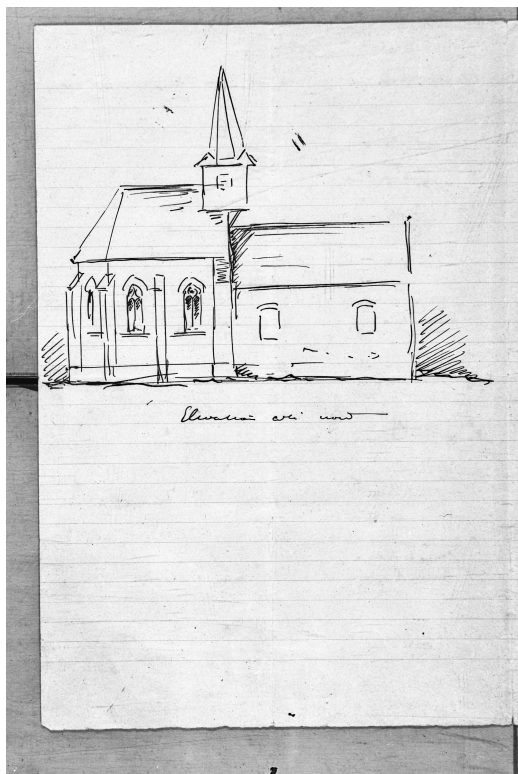 Elevation côté nord